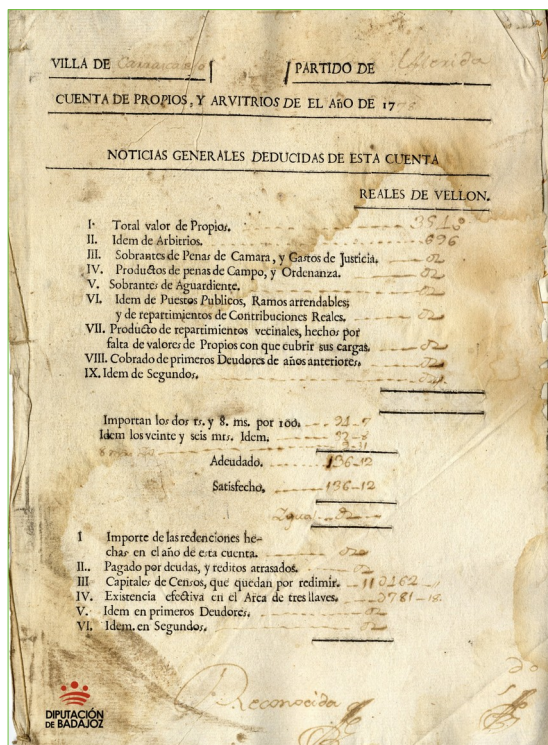 VILLA DE Carrascalejo PARTIDO DE Merida
CUENTA DE PROPIOS, Y ARVITRIOS DE EL AñO DE 17
NOTICIAS GENERALES DEDUCIDAS DE ESTA CUENTA
REALES DE VELLON.
I. Total valor de Propios.
II. Idem de Arbitrios. 696
III. Sobrantes de Penas de Camara, y Gastos de Justicia.
IV. Productos de penas de Campo, y Ordenanza.
V. Sobrantes de Aguardiente.
VI. Idem de Puestos Publicos, Ramos arrendables;
y de repartimientos de Contribuciones Reales.
VII. Producto de repartimientos vecinales, hechos por
falta de valores de Propios con que cubrir sus cargas.
VIII. Cobrado de primeros Deudores de años anteriores.
IX. Idem de Segundos.
Importan los dos rs. y 8. ms. por 100.
Idem los veinte y seis mrs. Idem.
Adeudado. 136-12
Satisfecho. 136-12
Igual
I Importe de las redenciones he-
chas en el año de esta cuenta.
II.. Pagado por deudas, y reditos atrasados.
III Capitales de Censos, que quedan por redimir.
IV. Existencia efectiva en el Arca de tres llaves.
V. Idem en primeros Deudores.
VI. Idem. en Segundos.
Reconocida
DIPUTACIÓN
DE BADAJOZ